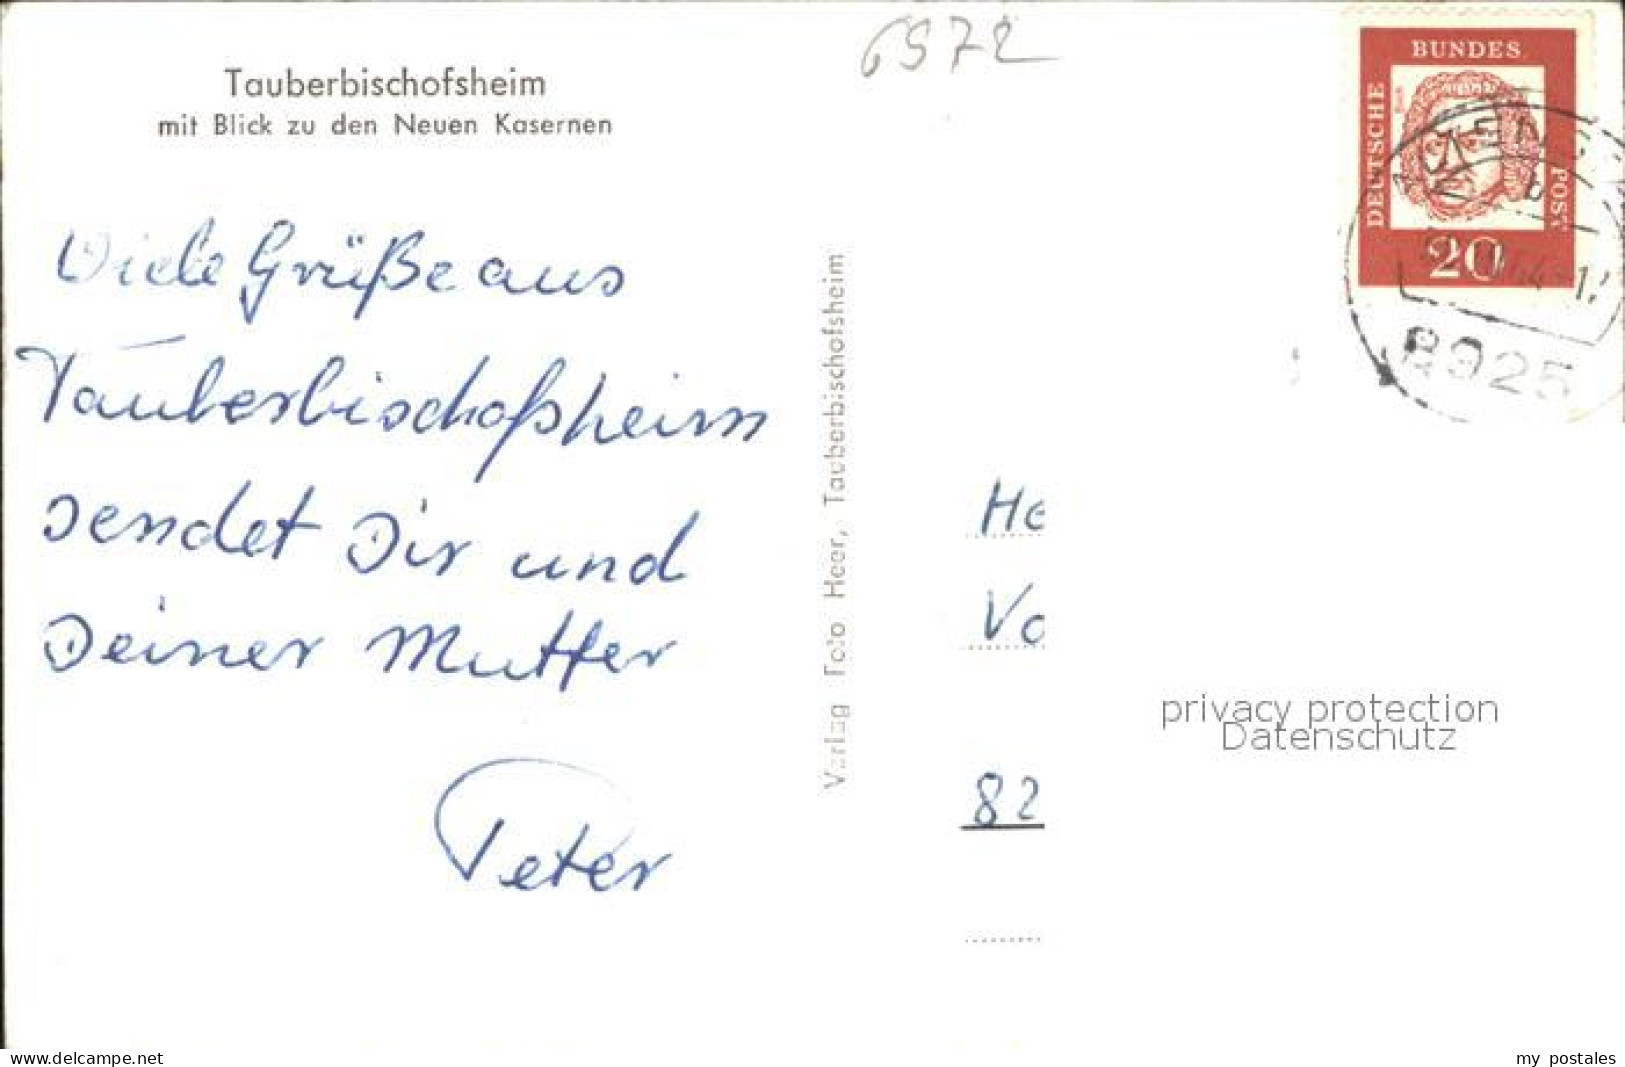 Tauberbischofsheim
mit Blick zu den Neuen Kasernen
6972
BUNDES
DEUTSCHE
POST
20
6925
Viele Grüße aus
Tauberbischofsheim
sendet Dir und
Deiner Mutter
Peter
Verlag Foto Heer, Tauberbischofsheim
He
Vo
82
privacy protection
Datenschutz
www.delcampe.net
my postales